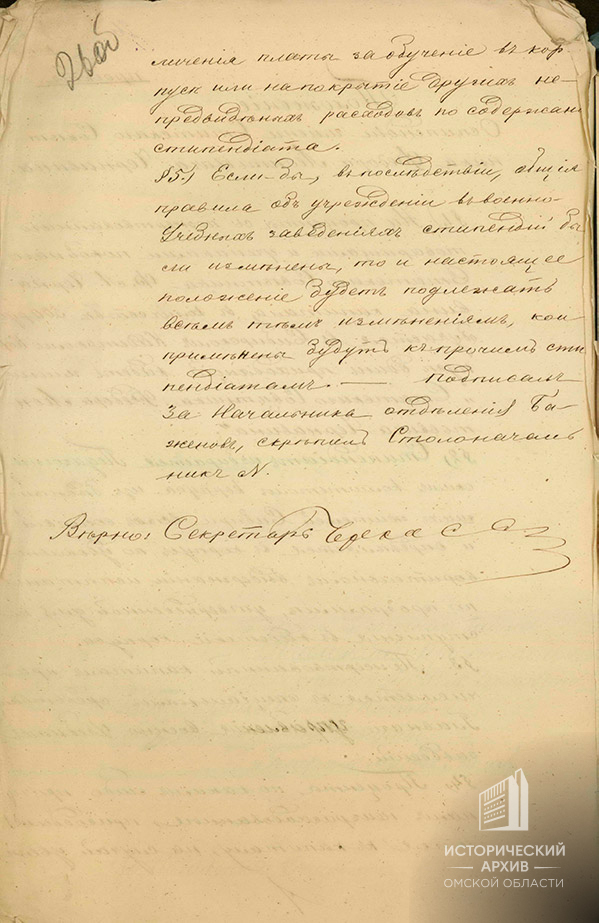 26об
личенія платы за обученіе въ кор
пусѣ или на покрытіе другихъ не-
предвидѣнныхъ расходовъ по содержан
стипендіата.
§5) Если-бы, впослѣдствіи, общія
правила объ учрежденіи въ военно-
учебныхъ заведеніяхъ стипендій бы
ли измѣнены, то и настоящее
положеніе будетъ подлежать
всѣмъ тѣмъ измѣненіямъ, кои
примѣнены будутъ къ прочимъ сти
пендіатамъ. — Подписалъ
За Начальника отдѣленія Ба-
женовъ, скрѣпилъ Столоначаль
никъ N.
Вѣрно: Секретарь
ИСТОРИЧЕСКИЙ
АРХИВ
ОМСКОЙ ОБЛАСТИ